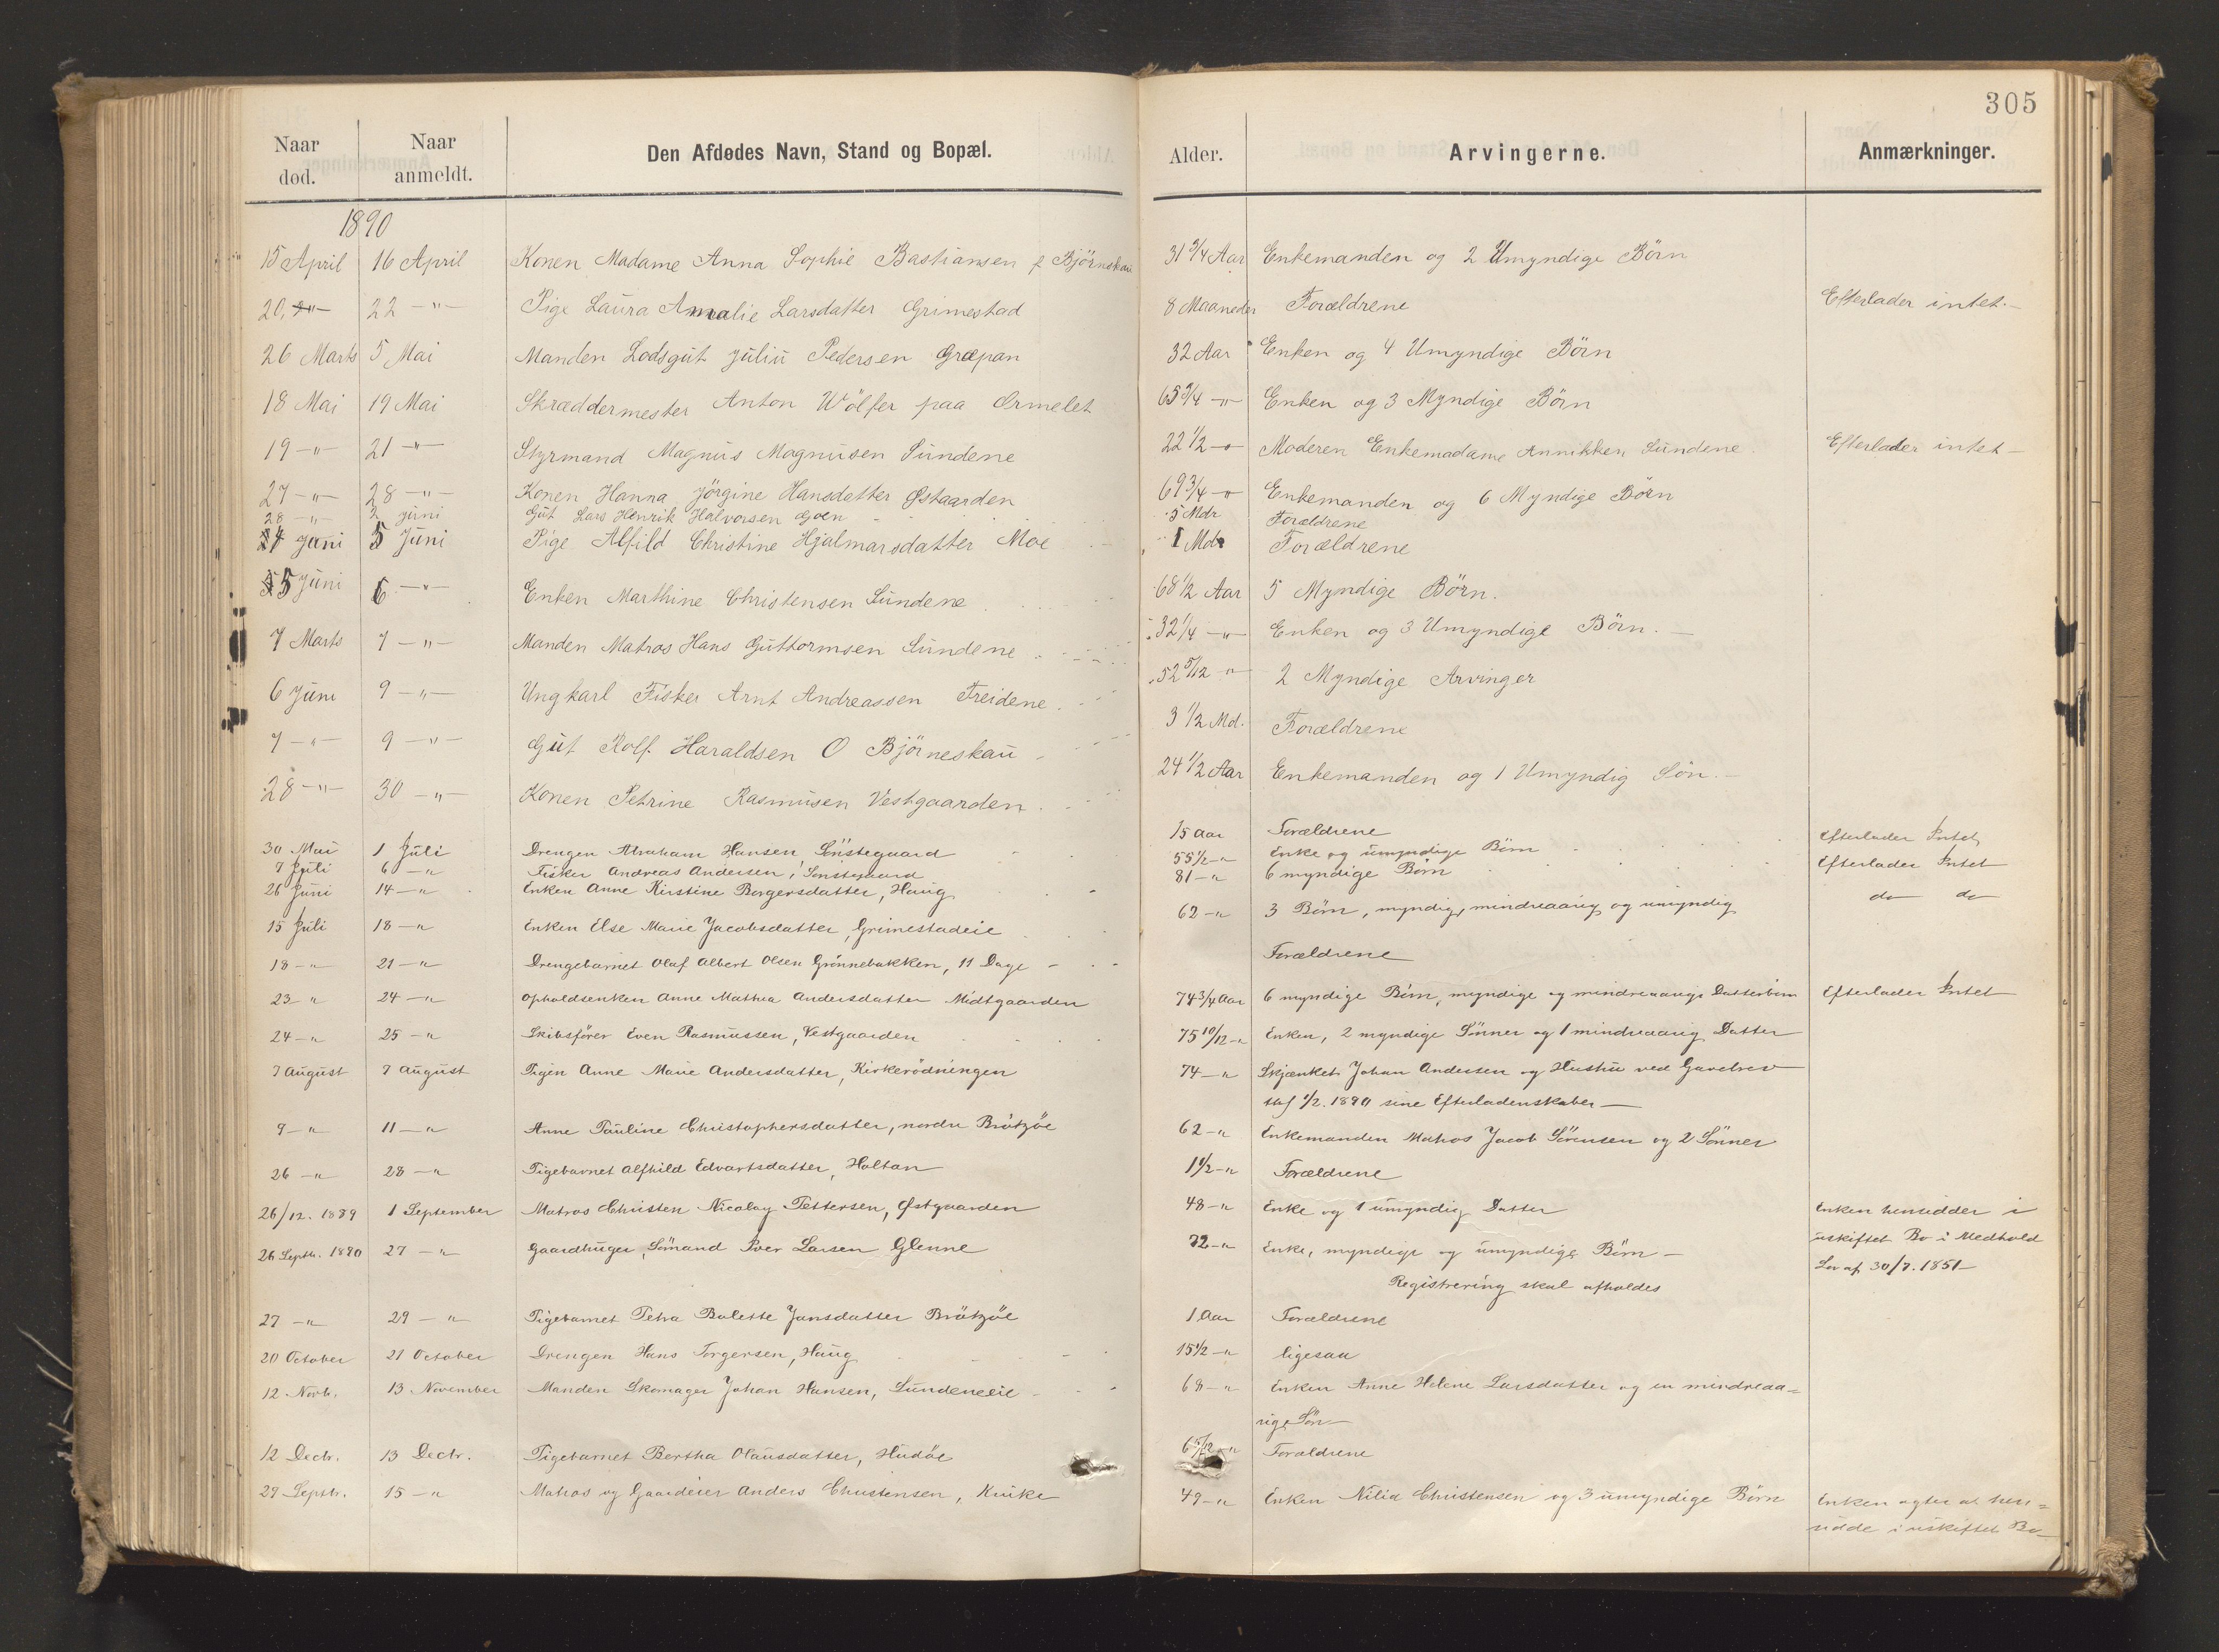 305
Naar død. Naar anmeldt. Den Afdødes Navn, Stand og Bopæl. Alder. Arvingerne. Anmærkninger.
1890
15 April 16 April Konen Madame Anna Sophie Bastiansen f Björneskau 31 3/4 Aar Enkemanden og 2 Umyndige Börn
20 -"- 22 -"- Pige Laura Amalie Larsdatter Grimestad 8 Maaneder Forældrene Efterlader intet.-
26 Marts 5 Mai Manden Lodsgut Juliu Pedersen Græpan 32 Aar Enken og 4 Umyndige Börn
18 Mai 19 Mai Skræddermester Anton Wölfer paa Ormelet 65 3/4 -"- Enken og 3 Myndige Börn
19 -"- 21 -"- Styrmand Magnus Magnusen Sundene 22 1/2 -"- Moderen Enkemadame Annikken Sundene. Efterlader intet -
27 -"- 28 -"- Konen Hanna Jörgine Hansdatter Østgaarden 69 3/4 -"- Enkemanden og 6 Myndige Börn
28 -"- 2 Juni Gut Lars Henrik Halvorsen Goen 5 Mdr Forældrene
4 Juni 5 Juni Pige Alfild Christine Hjalmarsdatter Moe 1 Md Forældrene
5 Juni 6 -"- Enken Marthine Christensen Sundene 68 1/2 Aar 5 Myndige Börn.
7 Marts 7 -"- Manden Matros Hans Guttormsen Sundene 32 1/4 -"- Enken og 3 Umyndige Börn. -
6 Juni 9 -"- Ungkarl Fisker Arnt Andreassen Treidene 52 5/12 -"- 2 Myndige Arvinger
7 -"- 9 -"- Gut Rolf Haraldsen O Björneskau 3 1/2 Md. Forældrene
28 -"- 30 -"- Konen Petrine Rasmusen Vestgaarden 24 1/2 Aar Enkemanden og 1 Umyndig Sön.-
30 Mai 1 Juli Drengen Abraham Hansen, Sönstegaard 15 Aar Forældrene Efterlader Intet
7 Juli 6 -"- Fisker Andreas Andersen, Sönstegaard 55 1/2 -"- Enke og umyndige Börn Efterlader Intet
26 Juni 14 -"- Enken Anne Kirstine Borgersdatter, Haug 81 -"- 6 myndige Börn do do
15 Juli 18 -"- Enken Else Marie Jacobsdatter, Grimestadeie 62 -"- 3 Börn, myndig, mindreaarig og umyndig
18 -"- 21 -"- Drengebarnet Olaf Albert Olsen Grönnebakken, 11 Dage - Forældrene
23 -"- 24 -"- Opholdsenken Anne Mathea Andersdatter Midtgaarden 74 3/4 Aar 6 myndige Börn, myndige og mindreaarige Datterbörn Efterlader Intet
24 -"- 25 -"- Skibsförer Even Rasmussen, Vestgaarden 75 10/12 -"- Enken, 2 myndige Sönner og 1 mindreaarig Datter
7 August 7 August Pigen Anne Marie Andersdatter, Kirkerödningen 74 -"- Skjænket Johan Andersen og Hustru ved Gavebrev
af 1/2. 1890 sine Efterladenskaber -
9 -"- 11 -"- Anne Pauline Christophersdatter, nordre Brötzöe 62 -"- Enkemanden Matros Jacob Sörensen og 2 Sönner
26 -"- 28 -"- Pigebarnet Alfhild Edvartsdatter, Holtan 1 1/2 -"- Forældrene
26/12. 1889 1 September Matros Christen Nicolay Pettersen, Østgaarden 48 -"- Enke og 1 umyndig Datter Enken hensidder i
uskiftet Bo i Medhold
Lov af 30/7. 1851 -
26 Septb. 1890 27 -"- Gaardbruger, Sömand Iver Larsen Glenne 72 -"- Enke, myndige og umyndige Börn -
Registrering skal afholdes
27 -"- 29 -"- Pigebarnet Petra Bolette Jansdatter Brötzöe 1 Aar Forældrene
20 October 21 October Drengen Hans Torgersen, Haug 15 1/2 -"- ligesaa
12 Novb. 13 November Manden Skomager Johan Hansen, Sundeneeie 68 -"- Enken Anne Helene Larsdatter og en mindreaa=
rige Sön -
12 Decb. 13 Decbr. Pigebarnet Bertha Olausdatter, Hudöe 6 5/12 -"- Forældrene
29 Septb. 15 -"- Matros og Gaardeier Anders Christensen, Kruke 49 -"- Enken Nilia Christensen og 3 umyndige Börn Enken agter at hen=
sidde i uskiftet Bo -